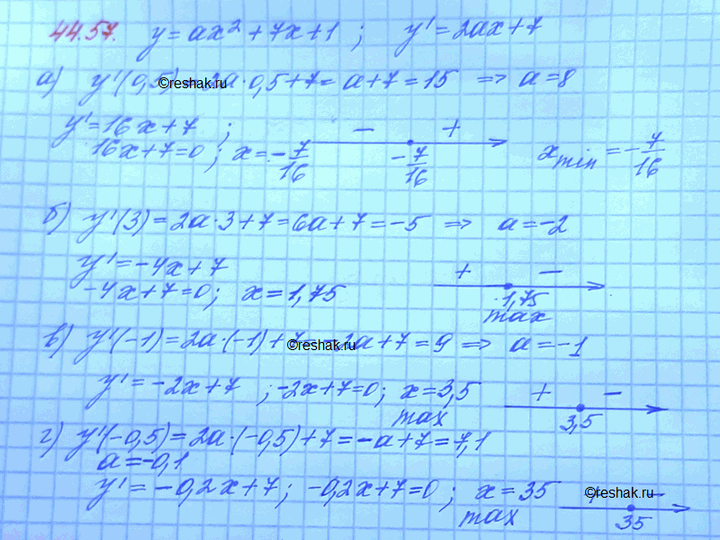 44.57. y = ax² + 7x + 1 ; y' = 2ax + 7
а) y'(0,5) ©reshak.ru 2a·0,5+7 = a+7 = 15 => a = 8
y' = 16x + 7 ; − +
16x+7=0 ; x = -7/16 -7/16 x min = -7/16
б) y'(3) = 2a·3+7 = 6a+7 = -5 => a = -2
y' = -4x+7 + −
-4x+7=0; x = 1,75 1,75
max
в) y'(-1) = 2a·(-1)+7 ©reshak.ru 2a+7 = 9 => a = -1
y' = -2x+7 ; -2x+7=0; x = 3,5 + −
max 3,5
г) y'(-0,5) = 2a·(-0,5)+7 = -a+7 = 7,1
a = -0,1
y' = -0,2x+7; -0,2x+7=0 ; x = 35 ©reshak.ru −
max 35